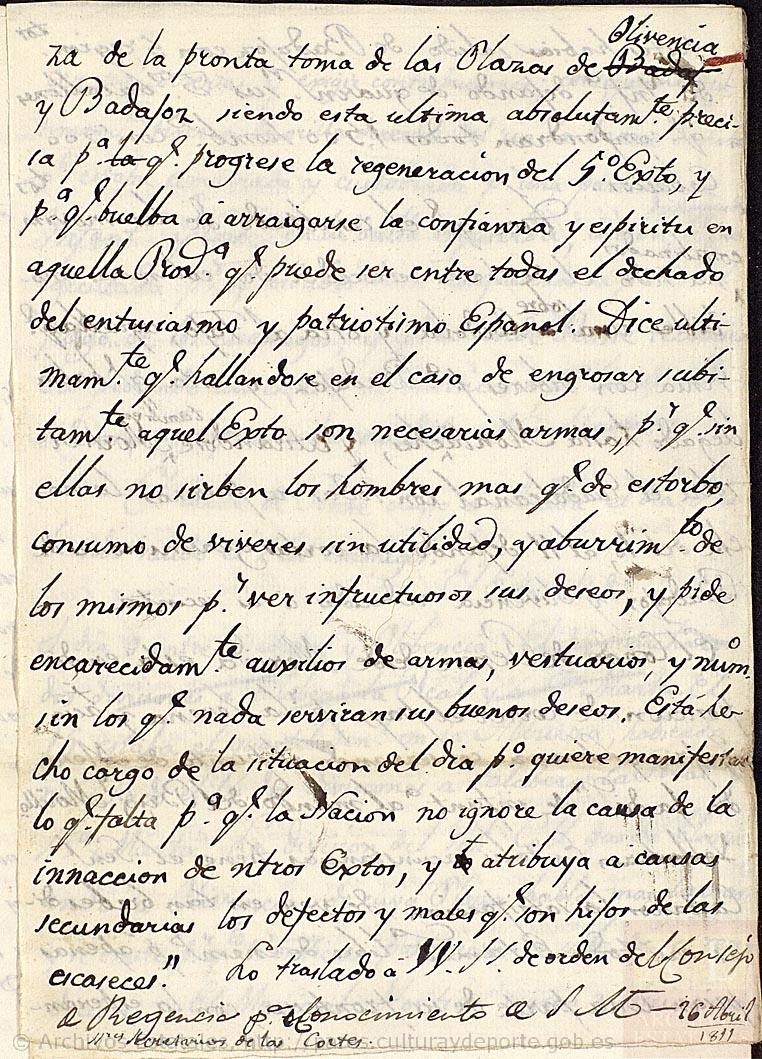 Olivencia
za de la pronta toma de las Plazas de Badaj
y Badajoz siendo esta ultima absolutam.te preci-
sa p.a la q.e progrese la regeneracion del 5.o Exto, y
p.a q.e buelba á arraigarse la confianza y espiritu en
aquella Prov.a q.e puede ser entre todas el dechado
del entusiasmo y patriotismo Español. Dice ulti-
mam.te q.e hallandose en el caso de engrosar subi-
tam.te aquel Exto son necesarias armas, p.r q.e sin
ellas no sirben los hombres mas q.e de estorbo,
consumo de viveres sin utilidad, y aburrim.to de
los mismos p.r ver infructuosos sus deseos, y pide
encarecidam.te auxilios de armas, vestuarios, y núm.o
sin los q.e nada serviran sus buenos deseos. Está he-
cho cargo de la situacion del dia p.o quiere manifestar
lo q.e falta p.a q.e la Nacion no ignore la causa de la
innaccion de ntros Extos, y atribuya a causas
secundarias los defectos y males q.e son hijos de las
escaseces." Lo traslado á VV. SS. de orden del Consejo
de Regencia p.a conocimiento de S M — 26 Abril
1811
Secretarios de las Cortes.
© Archivos Estatales, culturaydeporte.gob.es